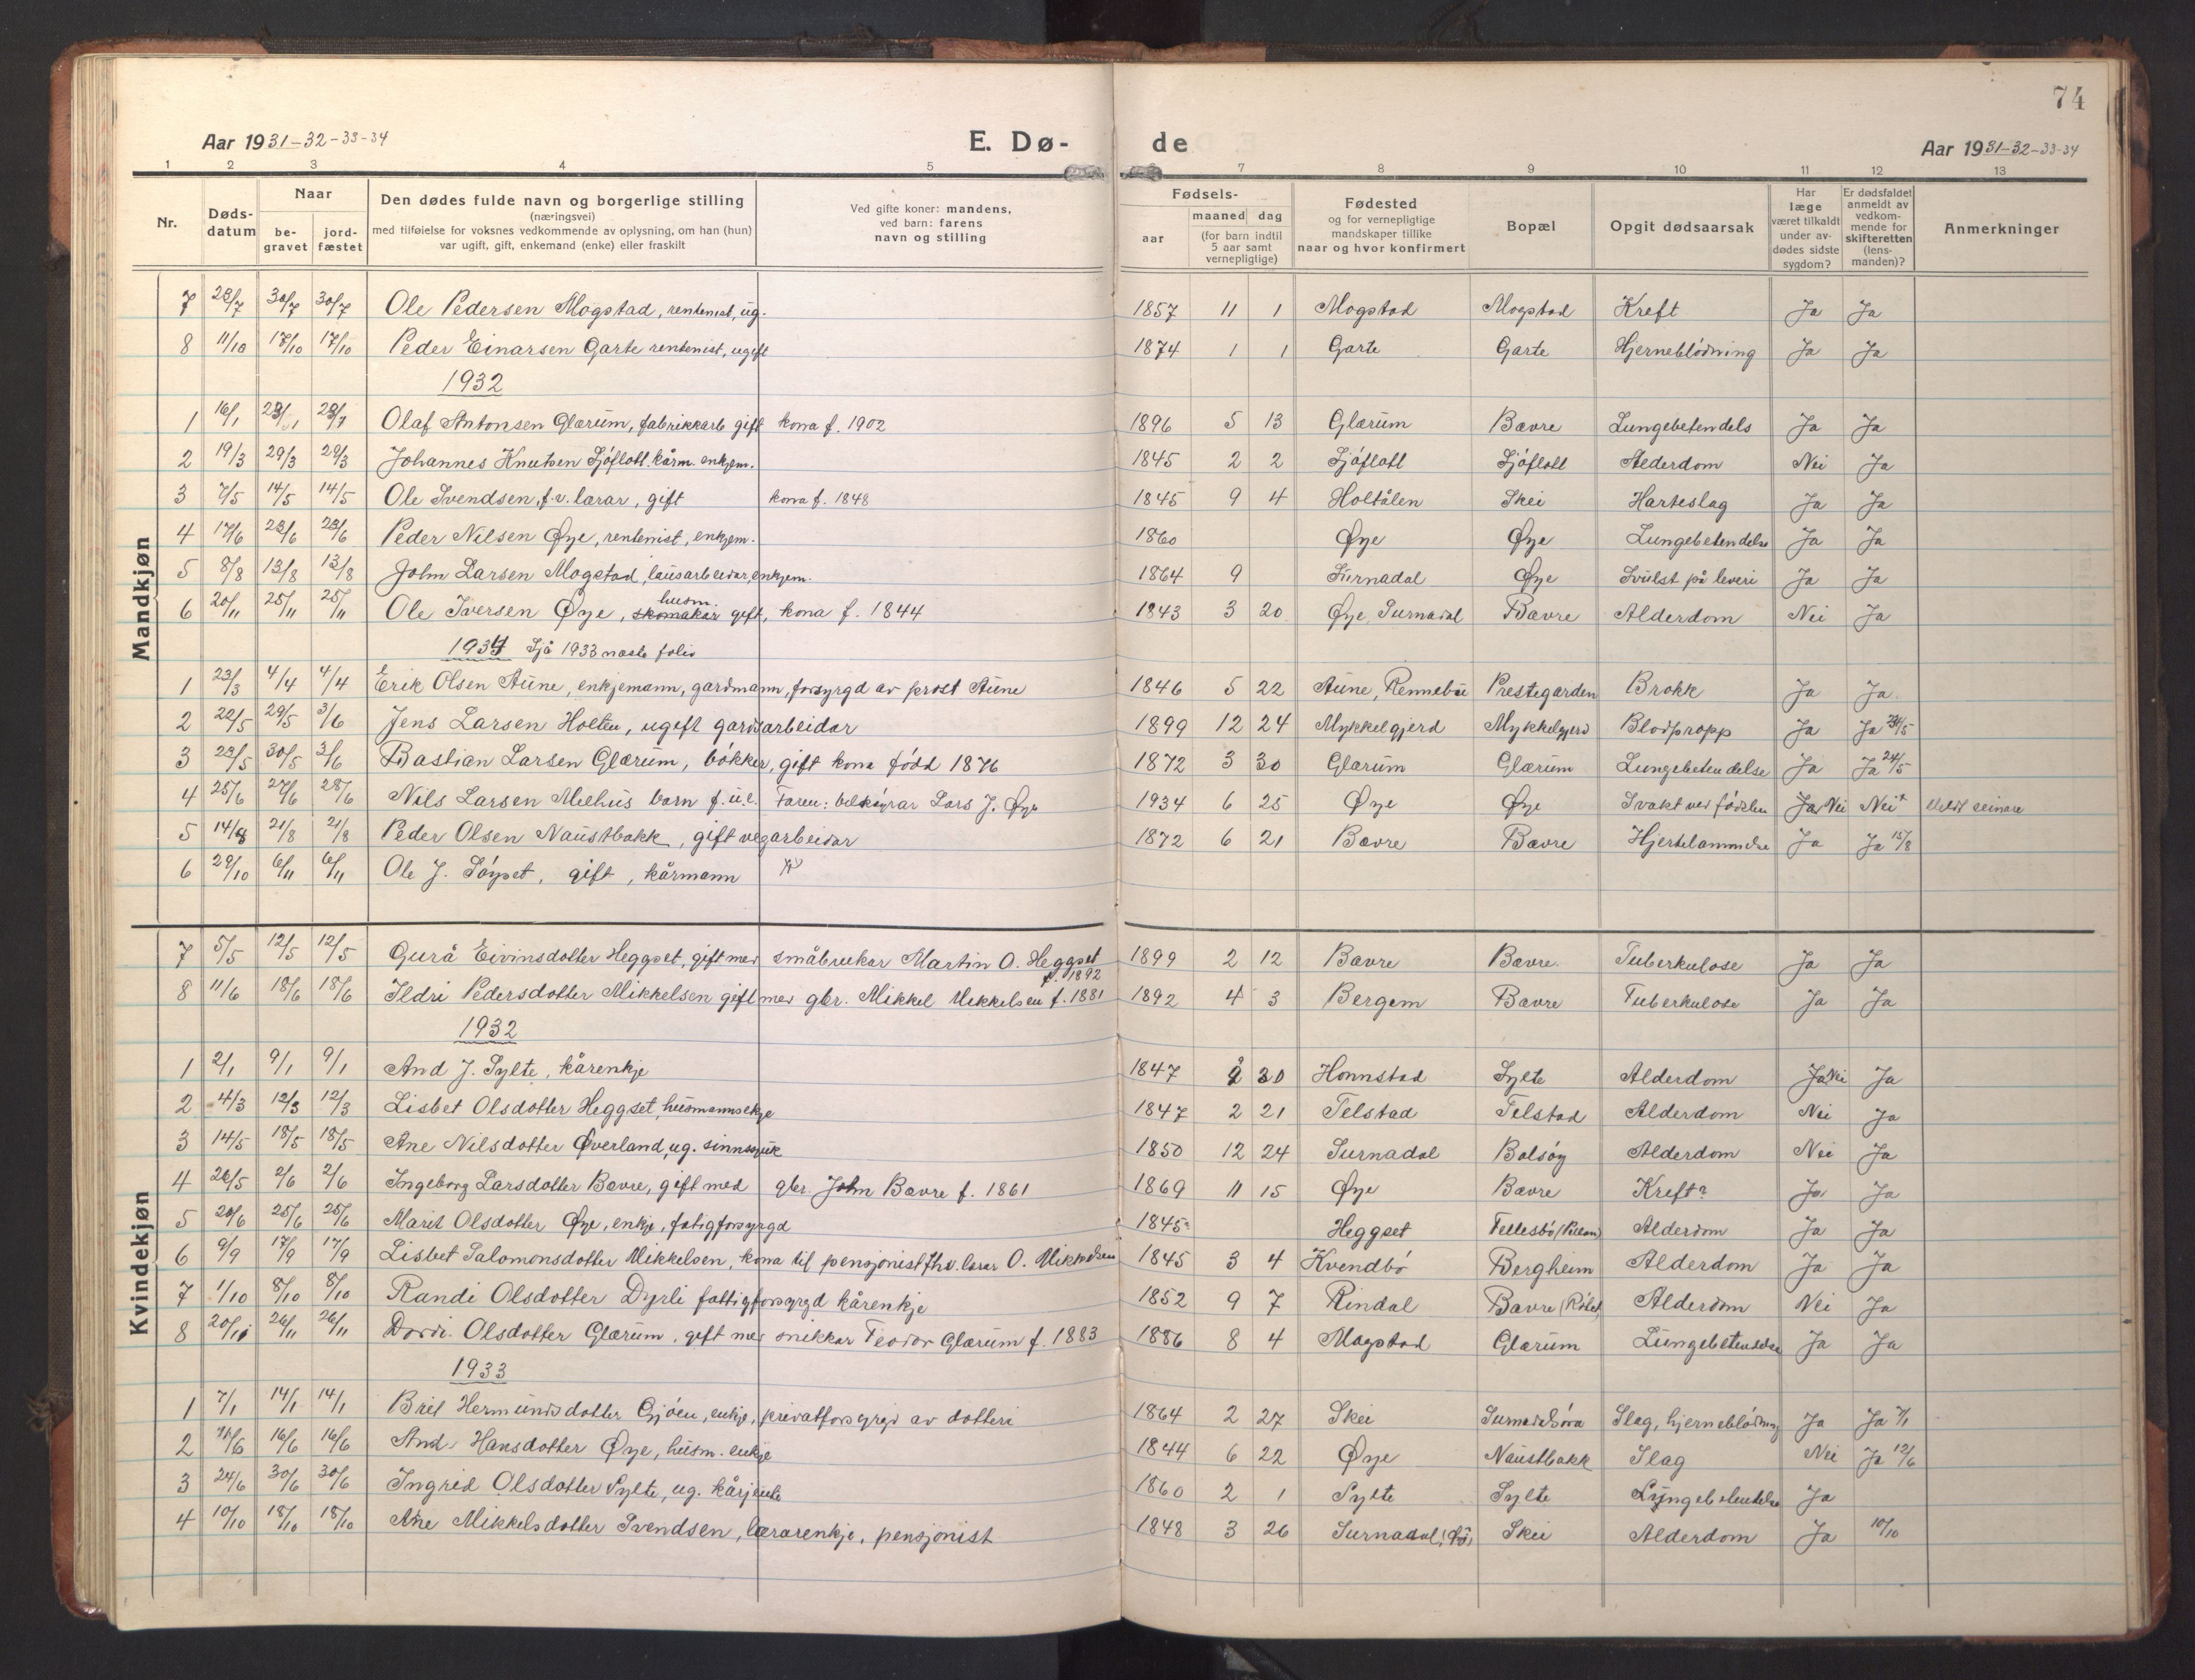 74
Aar 1931-32-33-34 E. Dø- de Aar 1931-32-33-34
1 2 3 4 5 7 8 9 10 11 12 13
Nr. Døds-datum Naar be-gravet jord-fæstet Den dødes fulde navn og borgerlige stilling (næringsvei) med tilføielse for voksnes vedkommende av oplysning, om han (hun) var ugift, gift, enkemand (enke) eller fraskilt Ved gifte koner: mandens, ved barn: farens navn og stilling Fødsels- aar maaned dag (for barn indtil 5 aar samt vernepligtige) Fødested og for vernepligtige mandskaper tillike naar og hvor konfirmert Bopæl Opgit dødsaarsak Har læge været tilkaldt under av-dødes sidste sygdom? Er dødsfaldet anmeldt av vedkom-mende for skifteretten (lens-manden)? Anmerkninger
Mandkjøn
7 28/7 30/7 30/7 Ole Pedersen Mogstad, rentenist, ug. 1857 11 1 Mogstad Mogstad Kreft Ja Ja
8 11/10 17/10 17/10 Peder Einarsen Garte rentenist, ugift 1874 1 1 Garte Garte Hjerneblödning Ja Ja
1932
1 16/1 23/1 23/1 Olaf Antonsen Glærum, fabrikkarb gift kona f. 1902 1896 5 13 Glærum Bævre Lungebetendels Ja Ja
2 19/3 29/3 29/3 Johannes Knutsen Sjöflott, kårm. enkjem. 1845 2 2 Sjöflott Sjöflott Alderdom Nei Ja
3 7/5 14/5 14/5 Ole Svendsen, f.v. lærar, gift kona f. 1848 1845 9 4 Holtålen Skei Harteslag Ja Ja
4 17/6 23/6 23/6 Peder Nilsen Øye, rentenist, enkjem. 1860 Øye Øye Lungebetendelse Ja Ja
5 8/8 13/8 13/8 John Larsen Mogstad, lausarbeidar, enkjem. 1864 9 Surnadal Øye Svulst på leveri Ja Ja
6 20/11 25/11 25/11 Ole Iversen Øye, skomakar husm. gift, kona f. 1844 1843 3 20 Øye, Surnadal Bævre Alderdom Nei Ja
1934 Sjå 1933 næste folio
1 23/3 4/4 4/4 Erik Olsen Aune, enkjemann, gardmann, forsyrgd av prost Aune 1846 5 22 Aune, Rennebu Prestegarden Brokk Ja Ja
2 22/5 29/5 3/6 Jens Larsen Holten, ugift gardsarbeidar 1899 12 24 Mykkelgjerd Mykkelgjerd Blodpropp Ja Ja 24/5
3 23/5 30/5 3/6 Bastian Larsen Glærum, bökker, gift kona född 1876 1872 3 30 Glærum Glærum Lungebetendelse Ja Ja 24/5
4 25/6 27/6 28/6 Nils Larsen Melhus barn f.u.e. Faren: bilköyrar Lars J. Øye 1934 6 25 Øye Øye Svakt ved födslen Ja Nei Nei Meldt seinare
5 14/8 21/8 21/8 Peder Olsen Naustbakk, gift vegarbeidar 1872 6 21 Bævre Bævre Hjertelammelse Ja Ja 15/8
6 29/10 6/11 6/11 Ole J. Söyset, gift, kårmann
Kvindekjøn
7 5/5 12/5 12/5 Gurå Eivinsdotter Heggset, gift med småbrukar Martin O. Heggset f. 1892 1899 2 12 Bævre Bævre Tuberkulose Ja Ja
8 11/6 18/6 18/6 Ildri Pedersdotter Mikkelsen gift med gbr. Mikkel Mikkelsen f. 1881 1892 4 3 Bergem Bævre Tuberkulose Ja Ja
1932
1 2/1 9/1 9/1 And J. Sylte, kårenkje 1847 30 Honnstad Sylte Alderdom Ja Nei Ja
2 4/3 12/3 12/3 Lisbet Olsdotter Heggset, husmannsekje 1847 2 21 Telstad Telstad Alderdom Nei Ja
3 14/5 18/5 18/5 Ane Nilsdotter Øverland, ug. sinnssjuk 1850 12 24 Surnadal Bolsöy Alderdom Nei Ja
4 26/5 2/6 2/6 Ingeborg Larsdotter Bævre, gift med gbr. John Bævre f. 1861 1869 11 15 Øye Bævre Kreft? Ja Ja
5 20/6 25/6 25/6 Marit Olsdotter Øye, enkje, fatigforsyrgd 1845 Heggset Tellesbö Alderdom Ja Ja
6 9/9 17/9 17/9 Lisbet Salomonsdotter Mikkelsen, kona til pensjonist fhv. lærar O. Mikkelsen 1845 3 4 Kvendbö Bergheim Alderdom Ja Ja
7 1/10 8/10 8/10 Randi Olsdotter Dyrli fattigforsyrgd kårenkje 1852 9 7 Rindal Bævre Alderdom Nei Ja
8 20/11 26/11 26/11 Dordi Olsdotter Glærum, gift med snikkar Teodor Glærum f. 1883 1886 8 4 Mogstad Glærum Lungebetendelse Ja Ja
1933
1 7/1 14/1 14/1 Brit Hermundsdotter Gjöen, enkje, privatforsyrgd av dotteri 1864 2 27 Skei Surnadalsöra Slag, hjerneblödning Ja Ja 7/1
2 11/6 16/6 16/6 And Hansdotter Øye, husm. enkje 1844 6 22 Øye Naustbakk Slag Nei Ja 12/6
3 24/6 30/6 30/6 Ingrid Olsdotter Sylte, ug. kårjente 1860 2 1 Sylte Sylte Lungebetendelse Ja
4 10/10 18/10 18/10 Ane Mikkelsdotter Svendsen, lærarenkje, pensjonist 1848 3 26 Surnadal Skei Alderdom Ja 10/10